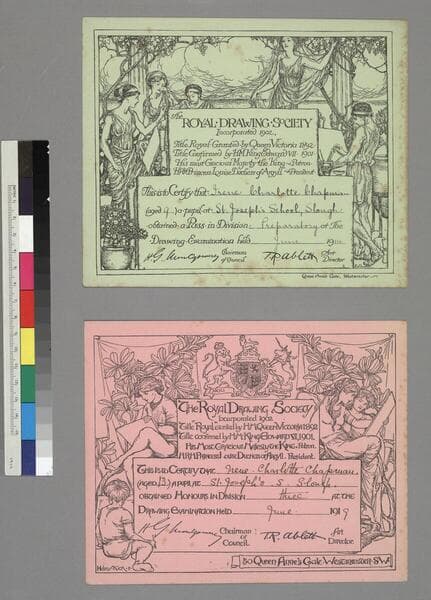 the
ROYAL·DRAWING·SOCIETY
Incorporated 1902.,
Title Royal Granted by Queen Victoria 1892
Title Confirmed by H.M. King Edward VII · 1901
His most Gracious Majesty the King - Patron
H.R.H. Princess Louise Duchess of Argyll - President
This is to Certify that Irene Charlotte Chapman
(aged 9) a pupil at St. Joseph's School, Slough
obtained a Pass in Division Preparatory at the
Drawing Examination held June 19
Chairman of Council
T.R. Ablett Art Director
Queen Anne's Gate, Westminster
The Royal Drawing Society
Incorporated 1902.
Title Royal Granted by H.M. Queen Victoria 1892
Title confirmed by H.M. King Edward VII, 1901.
His Most Gracious Majesty the King, Patron.
H.R.H. Princess Louise Duchess of Argyll. President.
This is to Certify that Irene Charlotte Chapman
(aged 13) a pupil at St. Joseph's S. Slough.
obtained Honours in Division three at the
Drawing Examination held June 1919
Chairman of Council
T.R. Ablett Art Director
50 Queen Anne's Gate Westminster S.W.